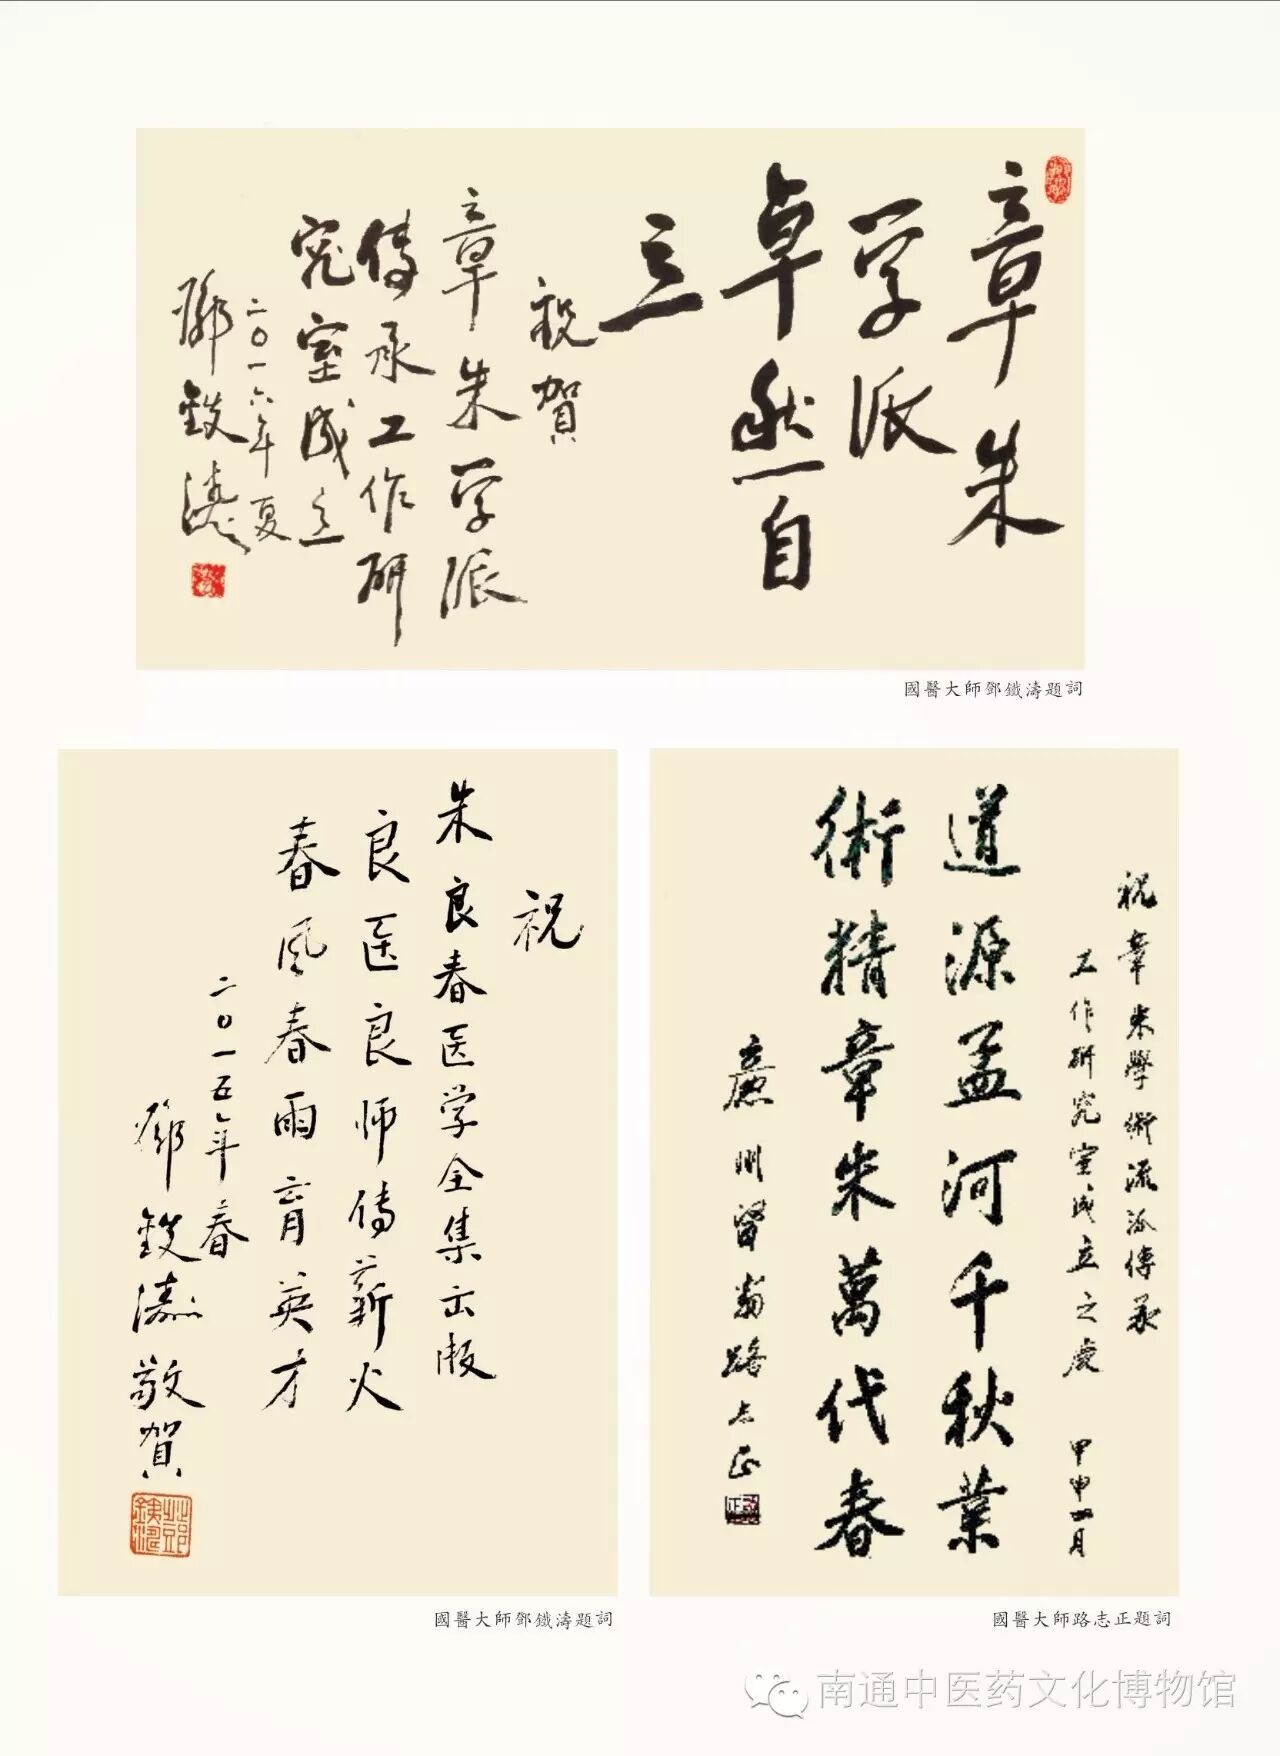 章朱
学派
卓然自
立
祝贺
章朱学派
傳承工作研
究室成立
二〇一六年夏
鄧鉄濤
國醫大師鄧鐵濤題詞
祝
朱良春医学全集出版
良医良师傳薪火
春风春雨育英才
二〇一五年春
鄧鉄濤敬賀
鄧鐵濤
國醫大師鄧鐵濤題詞
祝章朱學術流派傳承
工作研究室成立之慶 甲申
道源孟河千秋業
術精章朱萬代春
路志正
國醫大師路志正題詞
南通中医药文化博物馆